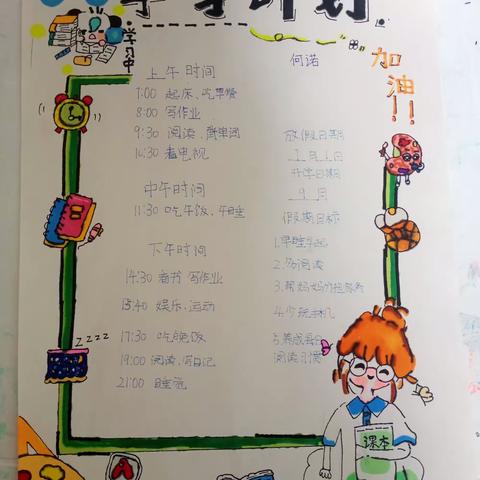 学习计划
学习中
何诺
加油!!
上午时间
7:00 起床、吃早餐
8:00 写作业
9:30 阅读、背单词
10:30 看电视
中午时间
11:30 吃午饭、午睡
下午时间
14:30 看书 写作业
15:40 娱乐、运动
17:30 吃晚饭
19:00 阅读、写日记
21:00 睡觉
放假日期
7月1日
开学日期
9月
假期目标
1.早睡早起
2.多阅读
3.帮妈妈
4.少玩手机
5.养成每日
阅读习惯
zzzz
课本